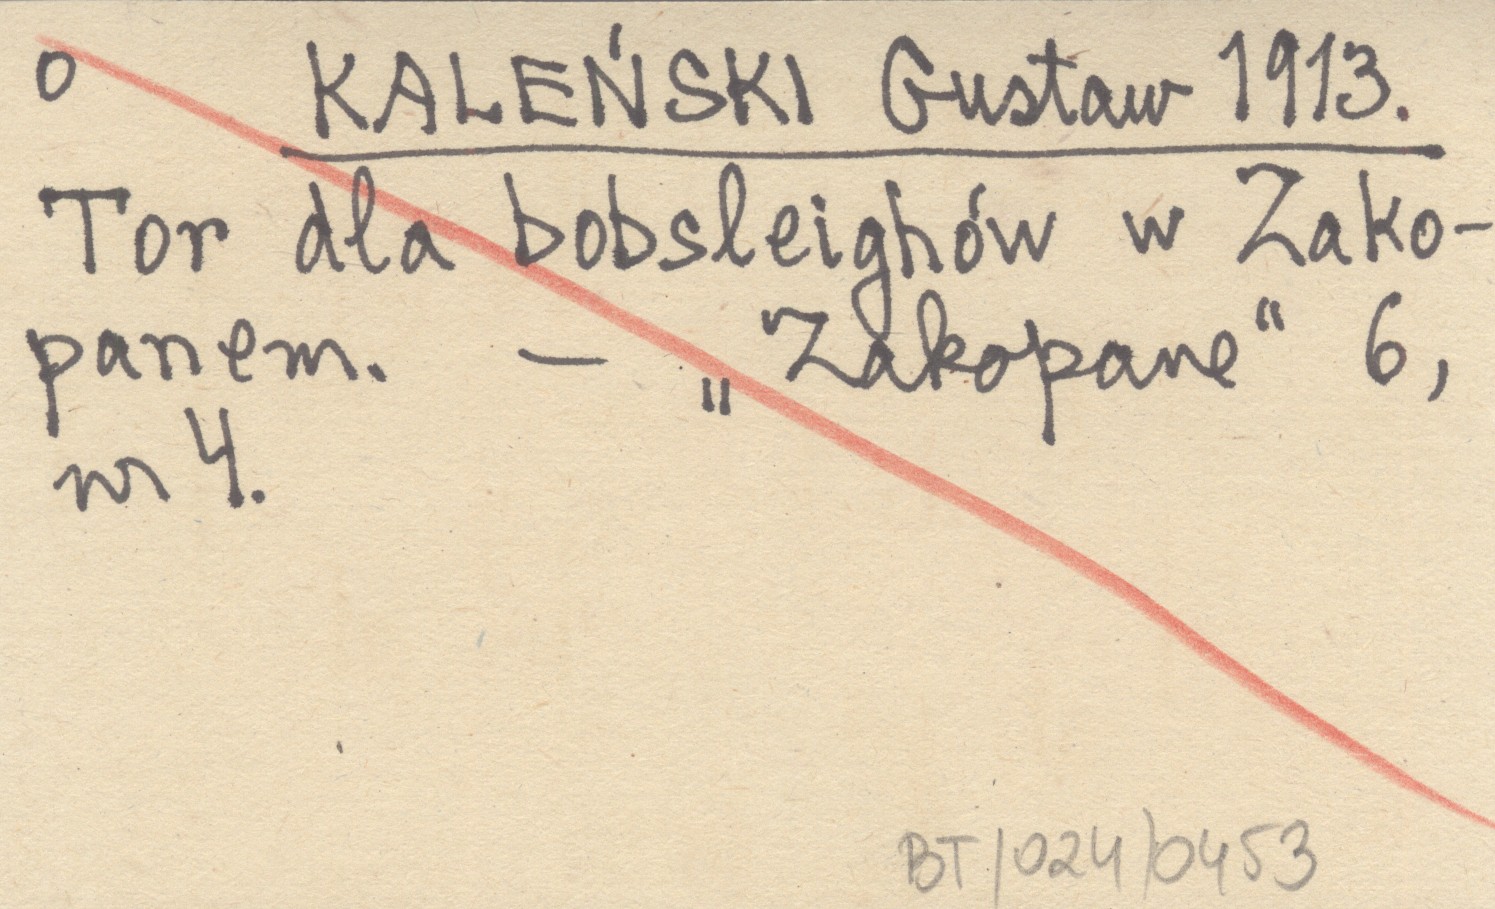 o KALEŃSKI Gustaw 1913.
Tor dla bobsleighów w Zako-
panem. – „Zakopane“ 6,
nr 4.
BT/024/0453